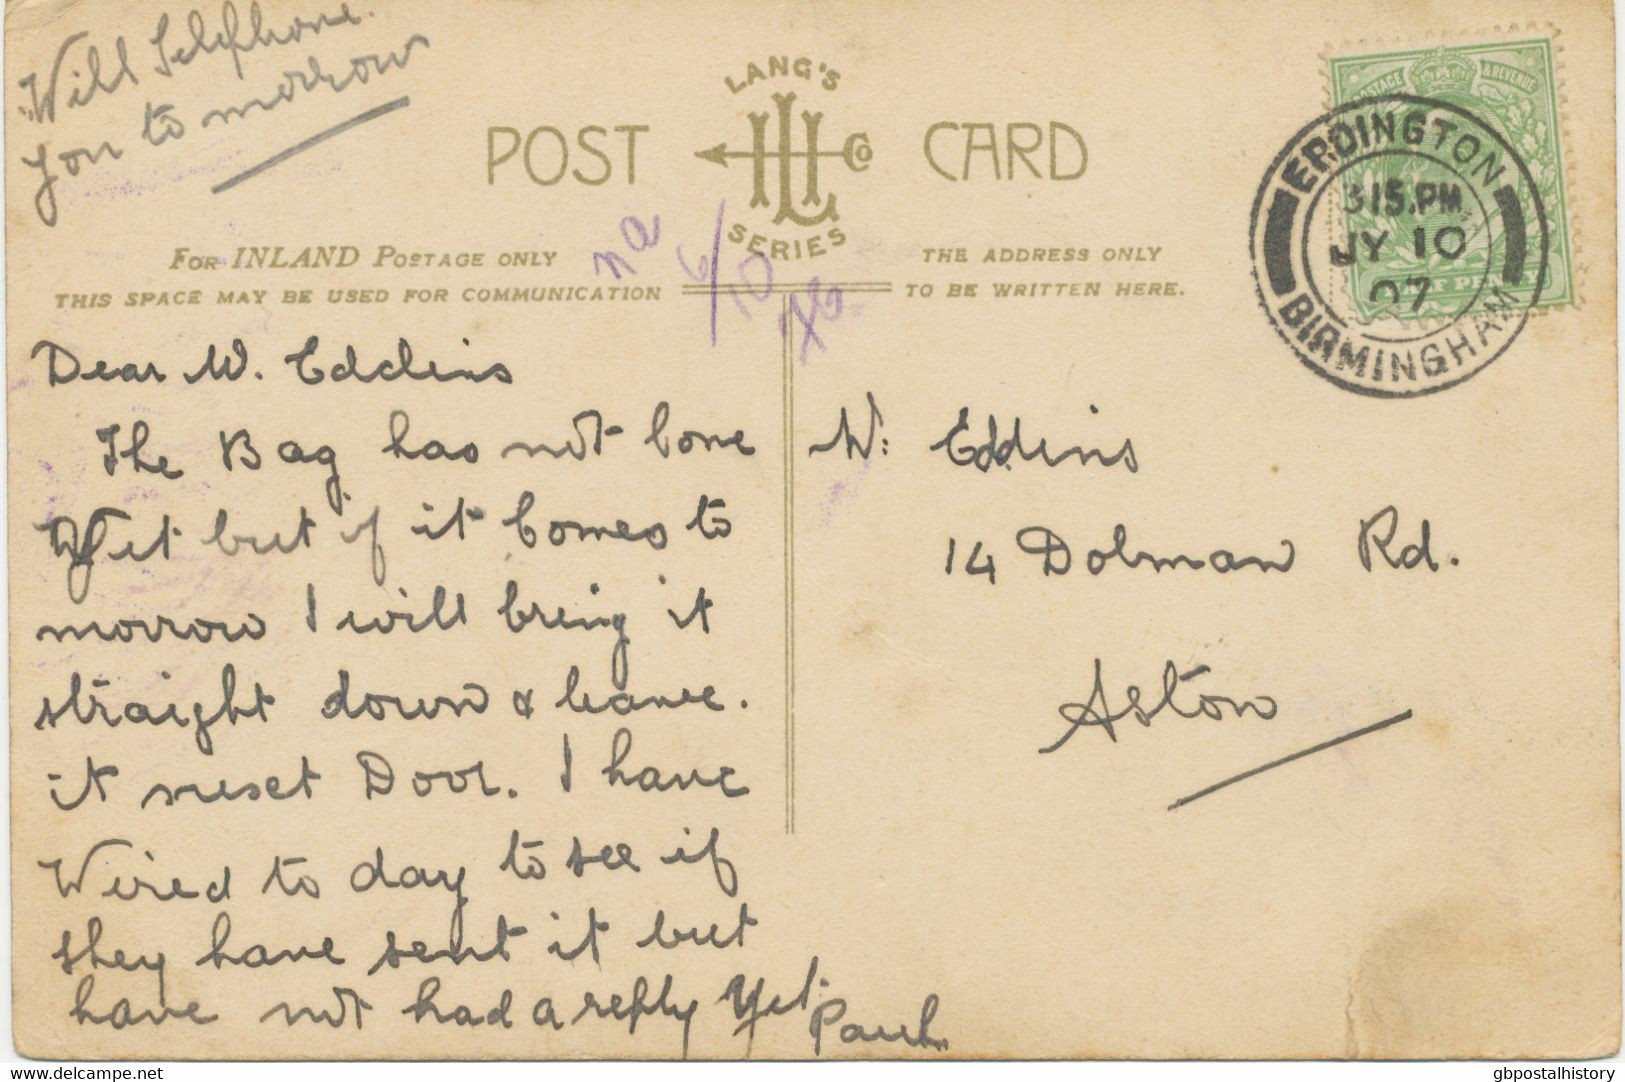 Will Telephone.
you to morrow
LANG'S
POST CARD
Co
SERIES
FOR INLAND POSTAGE ONLY
THIS SPACE MAY BE USED FOR COMMUNICATION
THE ADDRESS ONLY
TO BE WRITTEN HERE.
POSTAGE & REVENUE
ERDINGTON
315.PM
JY 10
07
BIRMINGHAM
na
6/10
Dear W. Eddins
The Bag has not Come
Yet but if it Comes to
morrow I will bring it
straight down & leave.
it next Door. I have
Wired to day to see if
they have sent it but
have not had a reply Yet.
Paul.
W: Eddins
14 Dolman Rd.
Aston
www.delcampe.net
gbpostalhistory